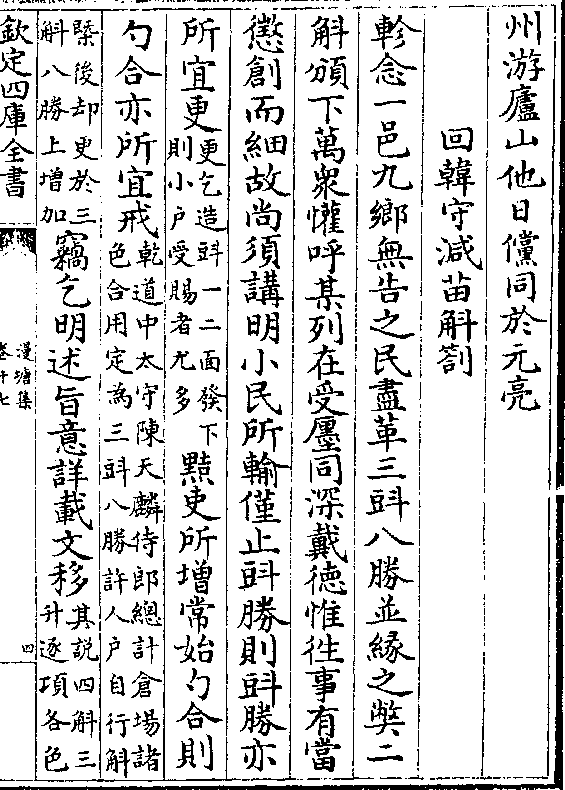 州游廬山他日儻同於元亮
回韓守減苗斛劄
軫念一邑九鄉無告之民盡革三㪷八勝並緣之弊二
斛頒下萬衆懽呼某列在受廛同深戴德惟徃事有當
懲創而細故尚須講明小民所輸僅止㪷勝則㪷勝亦
所宜更更乞造㪷一二面發下則小户受賜者尤多黠吏所增常始勺合則
勺合亦所宜戒乾道中太守陳天麟侍郎總計倉塲諸色合用定為三㪷八勝許人户自行斛
槩後却更於三斛八勝上增加竊乞明述旨意詳載文移其説四斛三升逐項各色
欽定四庫全書
漫塘集
卷十七
四